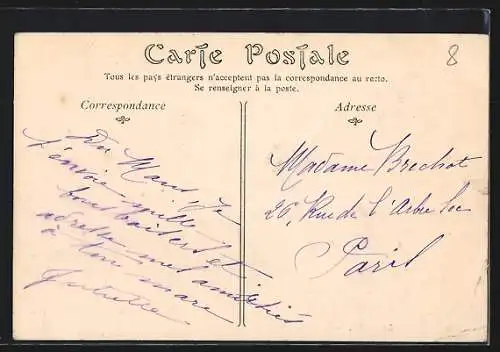 8
Carte Postale
Tous les pays étrangers n'acceptent pas la correspondance au recto.
Se renseigner à la poste.
Correspondance
Adresse
Du Mans, Je
t'envoie mille
bons baisers et
adresse mes amitiés
à ton mari
Juliette
Madame Brechot
26, Rue de l'Arbre Sec
Paris